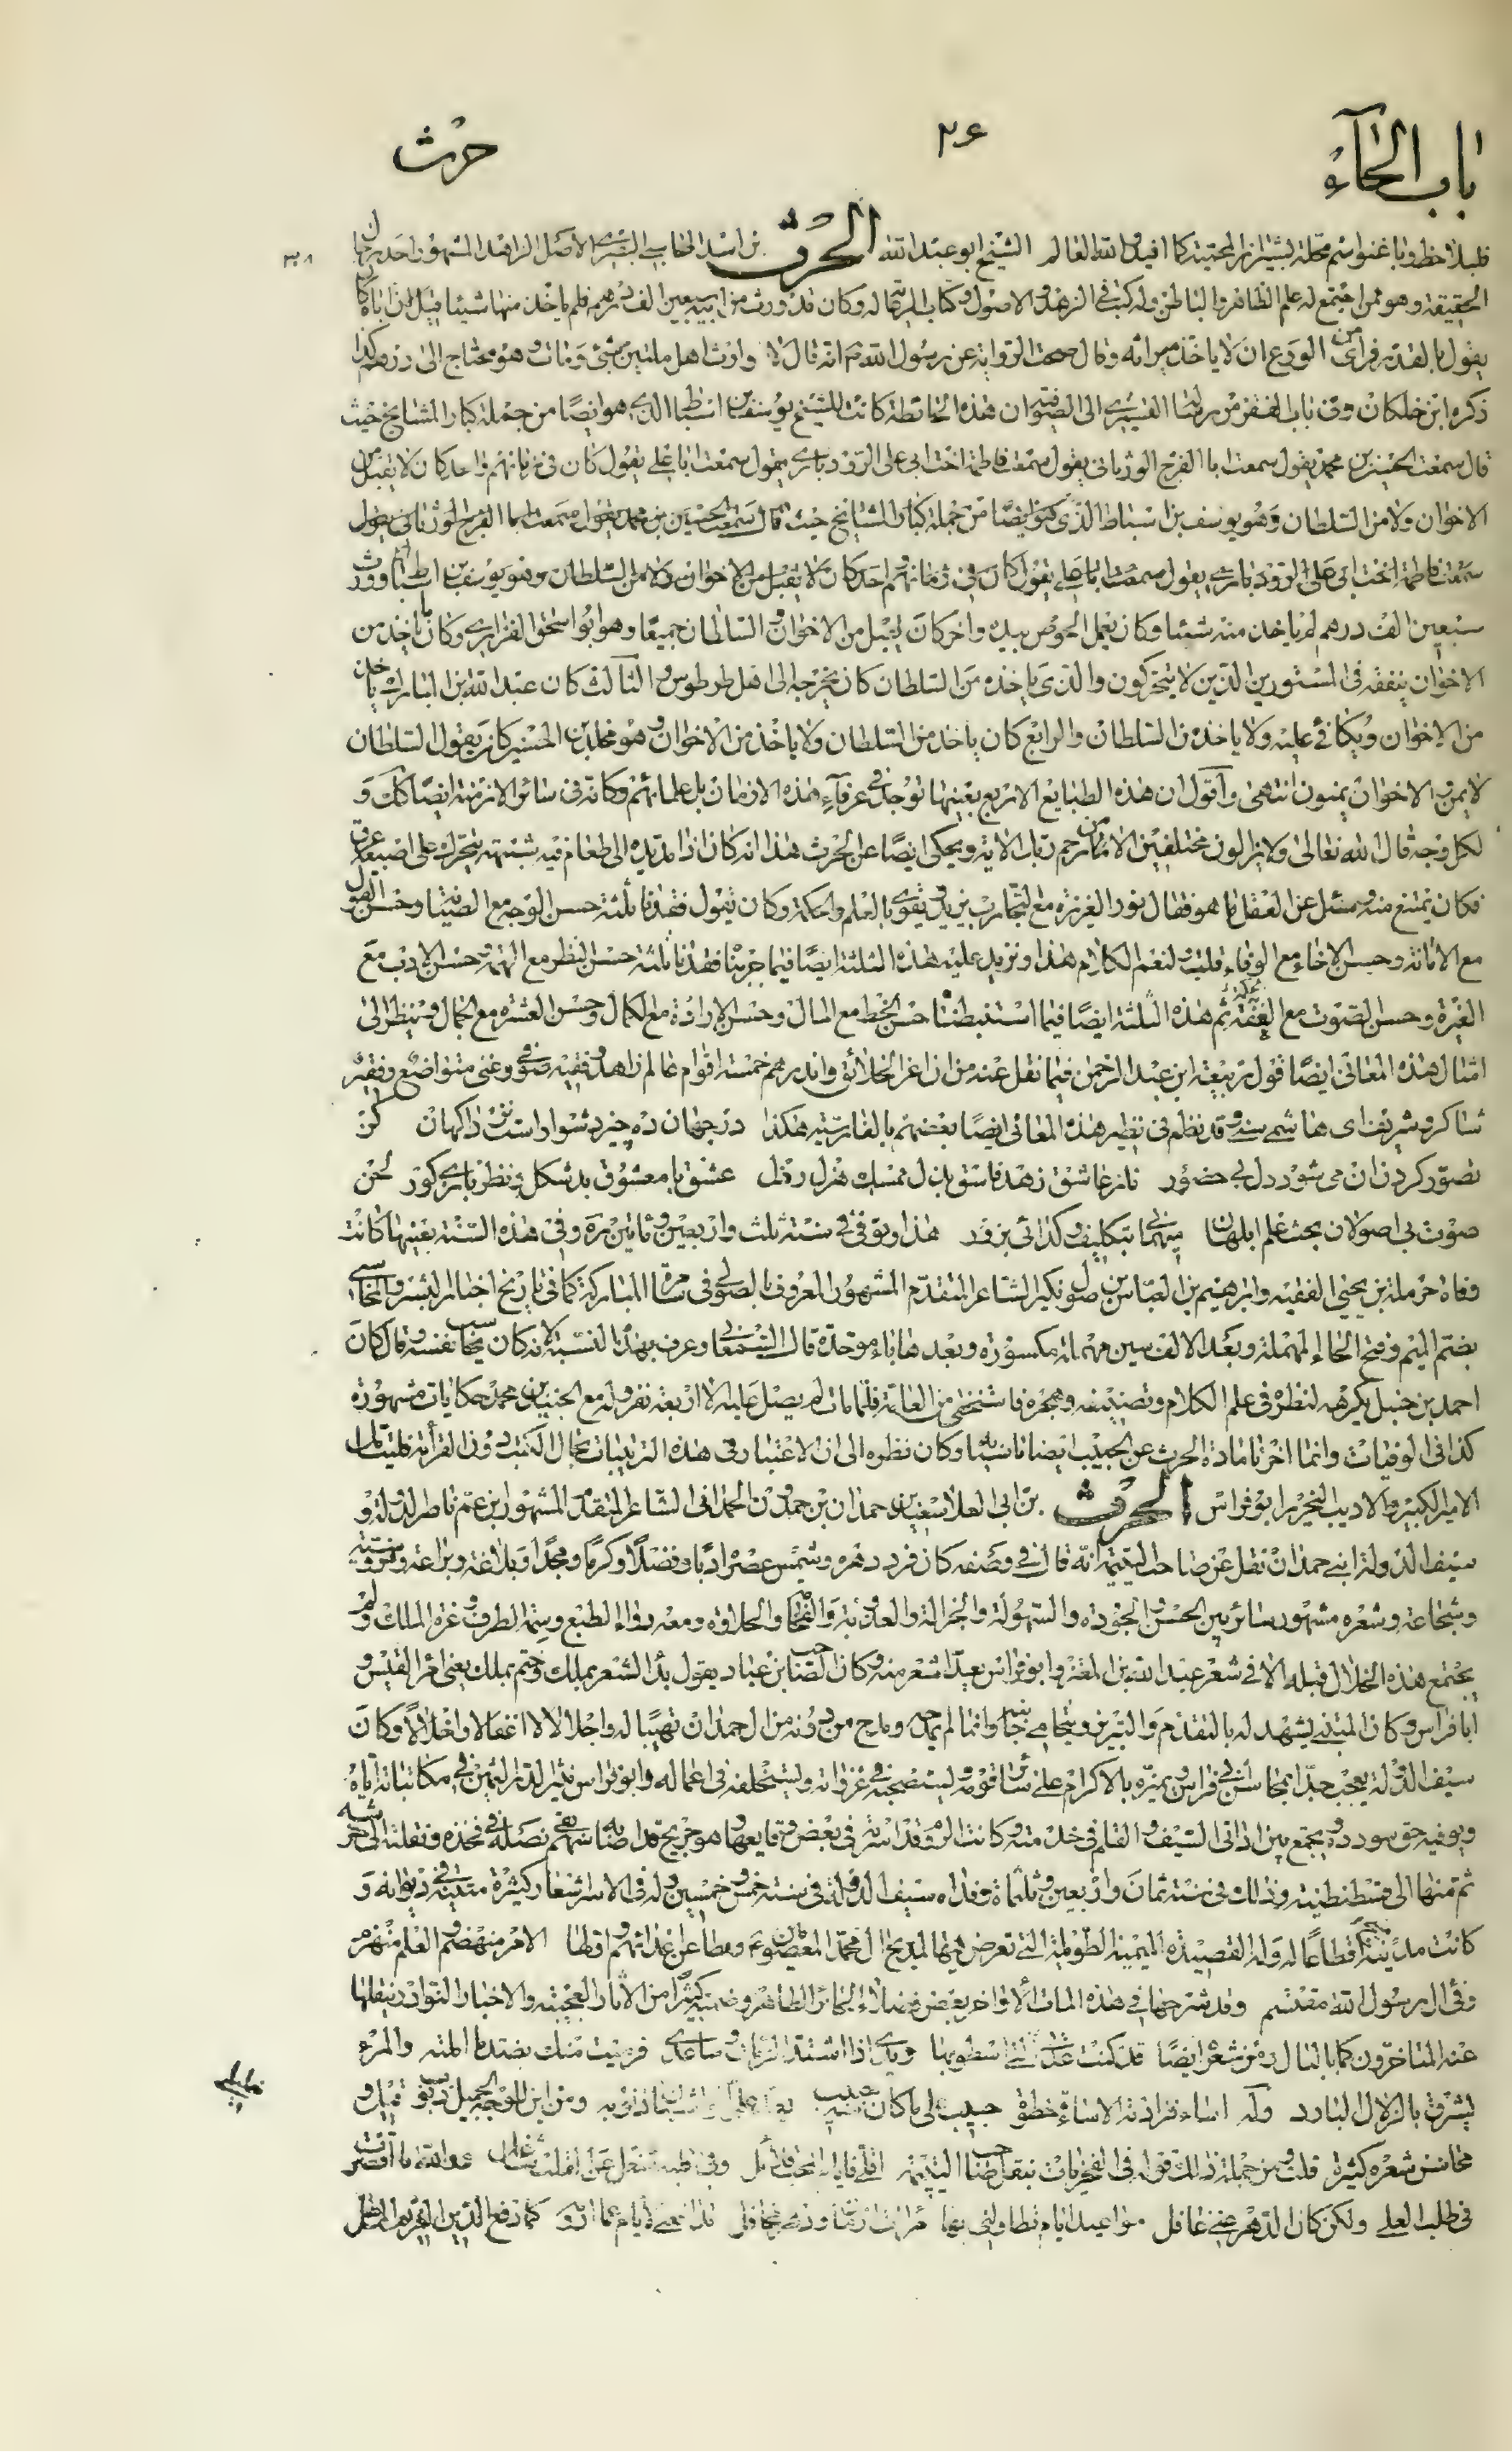 باب الحاء
٢٠۶
حرث
فليلاحظ وباغنو اسم محلة بشيراز المحمية كما افيد والله العالم الشيخ ابو عبد الله الحرث بن اسد المحاسبى البصرى الاصل الزاهد المشهور احد رجال
الحقيقة وهو ممن اجتمع له علم الظاهر والباطن وله كتب فى الزهد والاصول وكتاب الرعاية له وكان قد ورث من ابيه سبعين الف درهم فلم ياخذ منها شيئا قيل لان اباه كان
يقول بالقدر فراى من الورع ان لا ياخذ ميراثه وقال صحت الرواية عن رسول الله ص انه قال لا يتوارث اهل ملتين شتى ومات وهو محتاج الى درهم كذا
ذكره ابن خلكان وفى باب الفقر من رسالة القشيرى الى الصوفية ان هذه الخاصلة كانت للشيخ يوسف بن اسباط الذى هو ايضا من جملة كبار المشايخ حيث
قال سمعت الحسين بن محمد يقول سمعت ابا الفرج الورثانى يقول سمعت فاطمة اخت ابى على الرودبارى يقول سمعت ابا على يقول كان فى زمانهم واحد كان لا يقبل من
الاخوان ولا من السلطان وهو يوسف بن اسباط الذى هو ايضا من جملة كبار المشايخ حيث قال سمعت الحسين بن محمد يقول سمعت ابا الفرج الورثانى يقول
سمعت فاطمة اخت ابى على الرودبارى يقول سمعت ابا على يقول كان فى زمانهم احد كان لا يقبل من الاخوان ولا من السلطان وهو يوسف بن اسباط ورث
سبعين الف درهم لم ياخذ منه شيئا وكان يعمل الخوص بيده واخر كان يقبل من الاخوان والسلطان جميعا وهو ابو اسحق الفزارى وكان ما ياخذ من
الاخوان ينفقه فى المستورين الذين لا يتحركون والذى ياخذه من السلطان كان يخرجه الى اهل طرطوس والثالث كان عبد الله بن المبارك ياخذ
من الاخوان ويكافى عليه ولا ياخذ من السلطان والرابع كان ياخذ من السلطان ولا ياخذ من الاخوان وهو مخلد بن الحسين كان يقول السلطان
لا يمن والاخوان يمنون انتهى واقول ان هذه الطبايع الاربع بعينها توجد فى عرفاء هذه الازمان بل علمائهم وكانه فى سائر الازمنة ايضا كك و
لكل وجه قال الله تعالى ولا يزالون مختلفين الا من رحم ربك الاية ويحكى ايضا عن الحرث هذا انه كان اذا مد يده الى طعام فيه شبهة يتحرك على اصبعه عرق
فكان يمتنع منه وسئل عن العقل ما هو فقال نور الغريزة مع التجارب يزيد ويقوى بالعلم والحكمة وكان يقول فقدنا ثلثة حسن الوجه مع الصيانة وحسن القول
مع الامانة وحسن الاخاء مع الوفاء قلت ولنعم الكلام هذا ونزيد عليه هذه الثلثة ايضا فيما جربنا فقدنا ثلثة حسن النظر مع الهمة وحسن الادب مع
الغيرة وحسن الصوت مع العفة ثم هذه الثلثة ايضا فيما استنبطنا حسن الخط مع المال وحسن الارادة مع الكمال وحسن العشرة مع الجمال وينظر الى
امثال هذه المعانى ايضا قول ربيعة ابن عبد الرحمن فيما نقل عنه من ان اعز الخلائق واندرهم خمسة اقوام عالم زاهد وفقيه صوفى وغنى متواضع وفقير
شاكر وشريف اى هاشمى سنى وقد نظم فى نظير هذه المعانى ايضا بعضهم بالفارسية هكذا در جهان ده چيز دشوار است نزد اكهان كز
تصور كردن ان مى شود دل بى حضور ناز عاشق زهد فاسق بذل ممسك هزل رذل عشق با معشوق بدشكل و نظربازى كور لحن
صوت بى اصولان بحث علم ابلهان ميهمانى بتكليف و كدائى بزور هذا وتوفى فى سنة ثلث واربعين ومائتين مرة وفى هذه السنة بعينها كانت
وفاة حرملة بن يحيى الفقيه وابرهيم بن العباس بن صول تكين الشاعر المتقدم المشهور المعروف بالصولى فى سامرة المباركة كما فى تاريخ اخبار البشر والمحاسبى
بضم الميم وفتح الحاء المهملة وبعد الالف سين مهملة مكسورة وبعدها باء موحدة قال السمعانى وعرف بهذه النسبة لانه كان يحاسب نفسه وقال كان
احمد بن حنبل يكرهه لنظره فى علم الكلام وتصنيفه وهجره فاستخفى من العامة فلما مات لم يصل عليه الا اربعة نفر وله مع الجنيد بن محمد حكايات مشهورة
كذا فى الوفيات وانما اخرنا مادة الحرث عن الحبيب ايضا نا سيا وكان نظره الى ان الاعتبار فى هذه الترتيبات بحال الكتب دون القرائة فليتامل
الامير الكبير والاديب النحرير ابو فراس الحرث بن ابى العلاء سعيد بن حمدان بن حمدون الحمدانى الشاعر المتقدم المشهور ابن عم ناصر الدولة و
سيف الدولة ابنى حمدان نقل عن صاحب اليتيمة انه قال فى وصفه كان فرد دهره وشمس عصره ادبا وفضلا وكرما ومجدا وبلاغة وبراعة وفروسية
وشجاعة وشعره مشهور سائر بين الحسن والجودة والسهولة والجزالة والعذوبة والفخامة والحلاوة ومعه رواء الطبع وسمة الظرف وعزة الملك ولم
يجتمع هذه الخلال قبله الا فى شعر عبد الله بن المعتز وابو فراس يعد اشعر منه وكان الصاحب ابن عباد يقول بدأ الشعر بملك وختم بملك يعنى امرأ القيس و
ابا فراس وكان المتنبى يشهد له بالتقدم والتبريز ويتحامى جانبه وانما لم يمدحه ومدح من دونه من ال حمدان تهيبا له واجلالا لا اغفالا واخلالا وكان
سيف الدولة يعجب جدا بمحاسن ابى فراس ويميزه بالاكرام على سائر قومه ويستصحبه فى غزواته ويستخلفه فى اعماله وابو فراس ينثر الدر الثمين فى مكاتباته اياه
ويوفيه حق سودده ويجمع بين اداتى السيف والقلم فى خدمته وكانت الروم قد اسرته فى بعض وقايعها وهو جريح قد اصابه سهم بقى نصله فى فخذه ونقلته الى خرشنه
ثم منها الى قسطنطنية وذلك فى سنة ثمان واربعين وثلثمائة وفداه سيف الدولة فى سنة خمس وخمسين وله فى الاسر اشعار كثيرة مثبتة فى ديوانه و
كانت مدينة منبج اقطاعا له وله القصيدة الميمية الطويلة التى تعرض فيها لمديح ال محمد المعصومين ع ومطاعن اعدائهم واولها الامر منهضم والعلم منهزم
وفئ ال رسول الله مقتسم وقد شرحها فى هذه المات الاواخر بعض فضلاء الحائر الطاهر وضمنه كثيرا من الاثار العجيبة والاخبار النوادر ينقلها
عنه المتاخرون كما بالبال ومن شعره ايضا قد كنت عدتى التى اسطو بها ويدى اذا اشتد الزمان وساعدى فرميت منك بضد ما املته والمرء
يشرق بالزلال البارد وله اساء فزادته الاساءة حظوة حبيب على ما كان منه حبيب ومن اين للوجه الجميل ذنوب قيل و
محاسن شعره كثيرة قلت ومن جملة ذلك قوله فى الفخريات بنقل صاحب اليتيمة فوالله ما اقصرت
فى طلب العلى ولكن كان الدهر عنى غافل مواعيد ايام تطاولنى بها كما دفع الدين الغريم المماطل